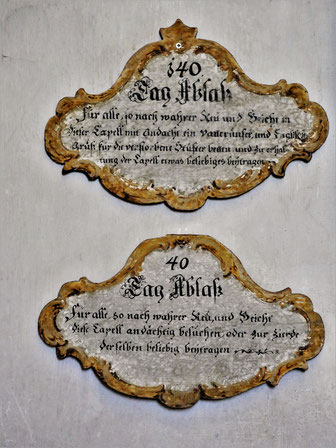 140
Tag Ablaß
Für alle, so nach wahrer Reu und Beicht in
dieser Capell mit Andacht ein Vatterunser, und Englisch
Gruß für die verstorbene Stüffter betten und zur erhal
tung der Capell etwas beliebiges beytragen
40
Tag Ablaß
Für alle, so nach wahrer Reü, und Beicht
diese Capell andächtig besuchen, oder zur Zierde
derselben beliebig beytragen